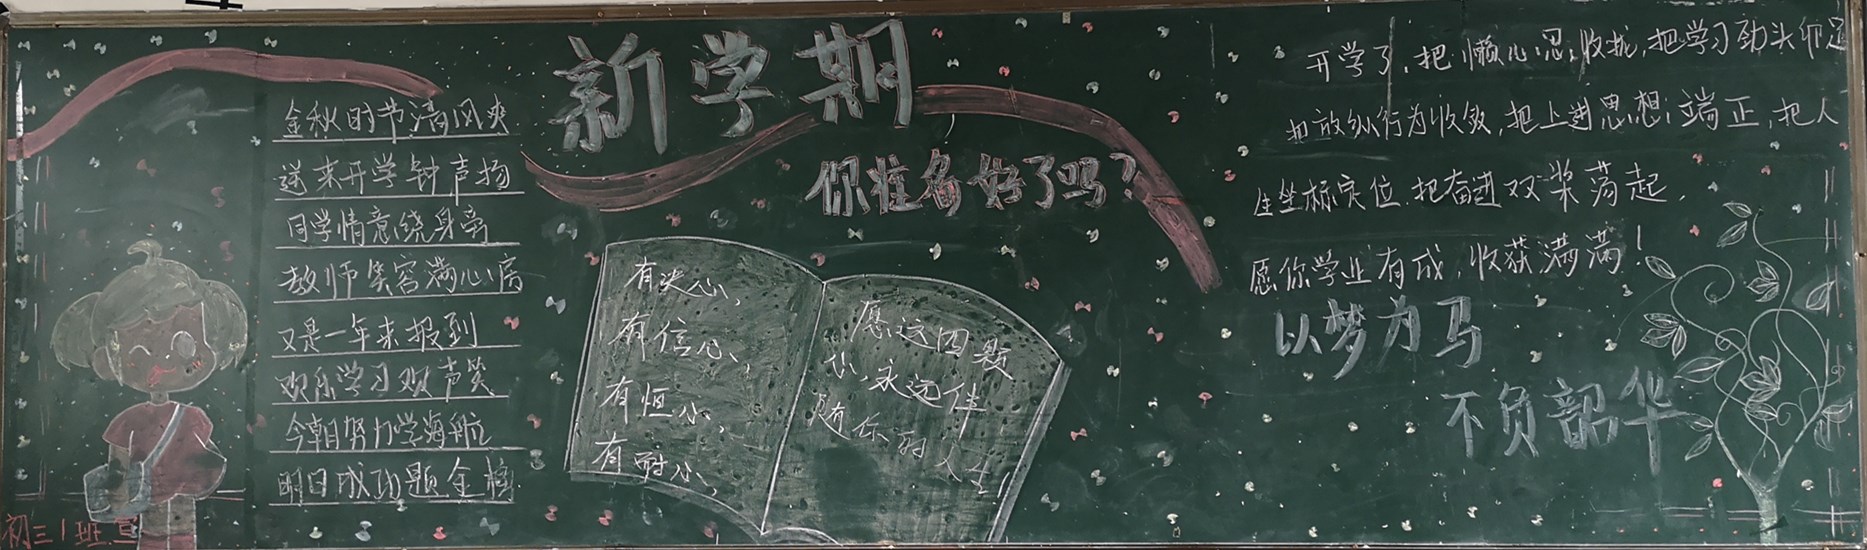 新学期
你准备好了吗?
金秋时节清风爽
送来开学钟声扬
同学情意绕身旁
教师笑容满心房
又是一年来报到
欢乐学习双声笑
今朝努力学海航
明日成功题金榜
初三1班宣
有决心,
有信心,
有恒心,
有耐心,
愿这四颗
心,永远伴
随你的人生!
开学了,把懒心思收拢,把学习劲头卯足
把放纵行为收敛,把上进思想端正,把人
生坐标定位,把奋进双桨荡起,
愿你学业有成,收获满满!
以梦为马
不负韶华